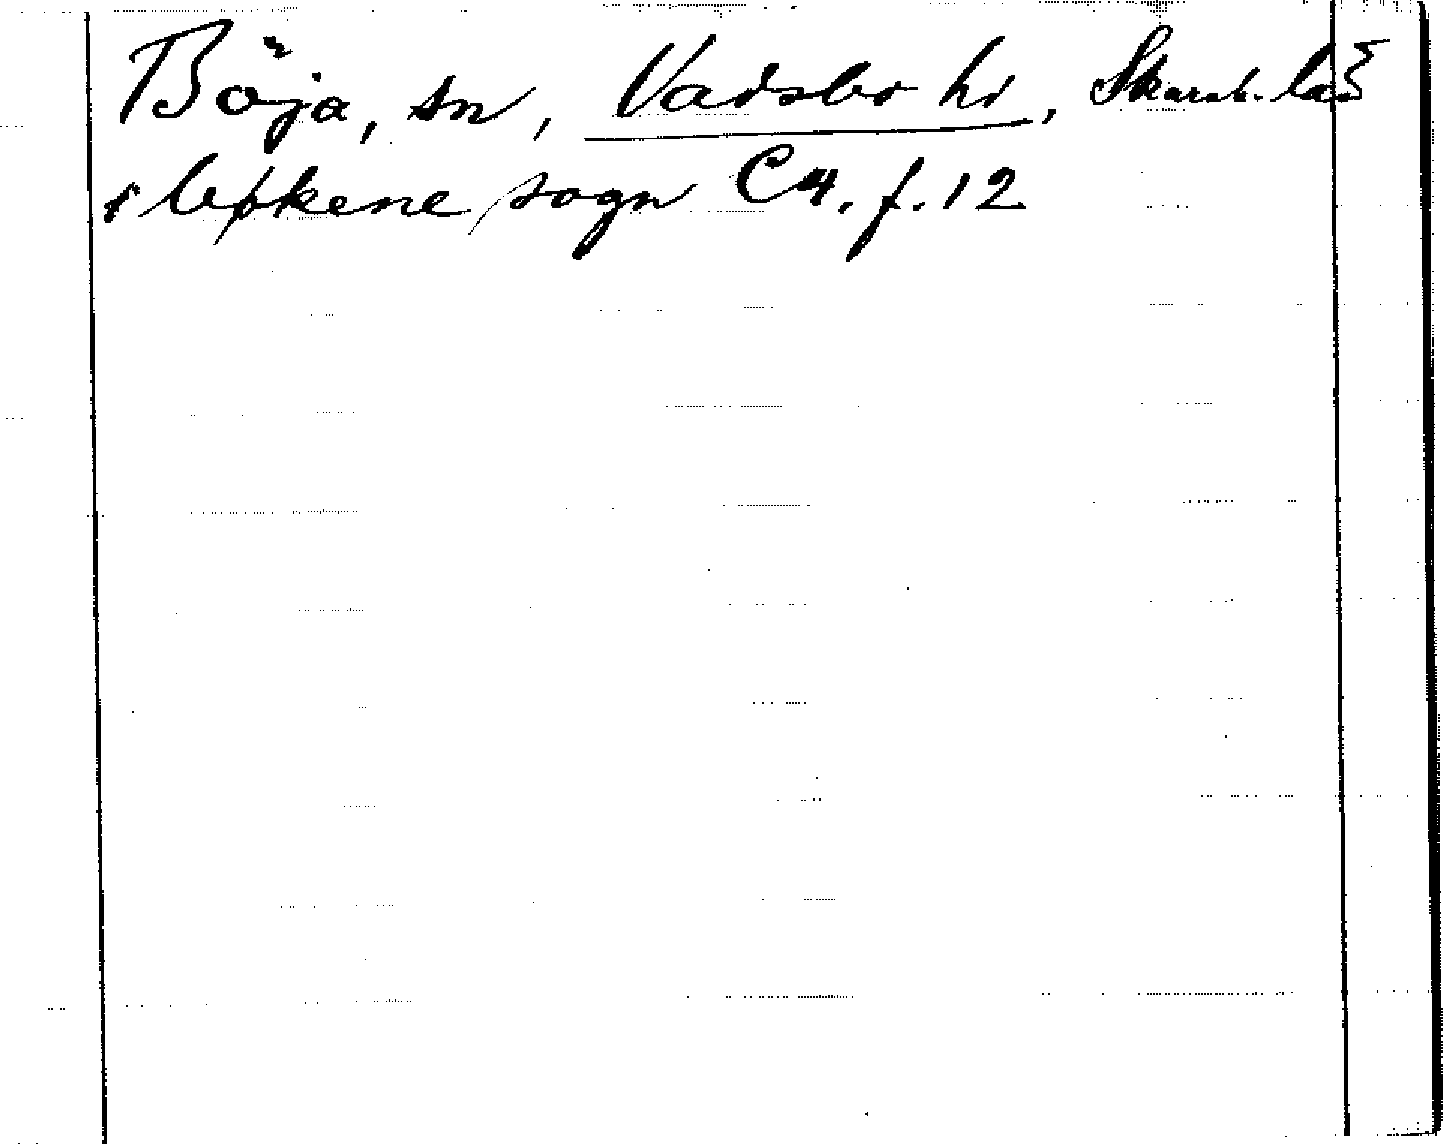 Böja, sn, Vadsbo hd, Skarab. län
i leþkene sogn C4. f. 12